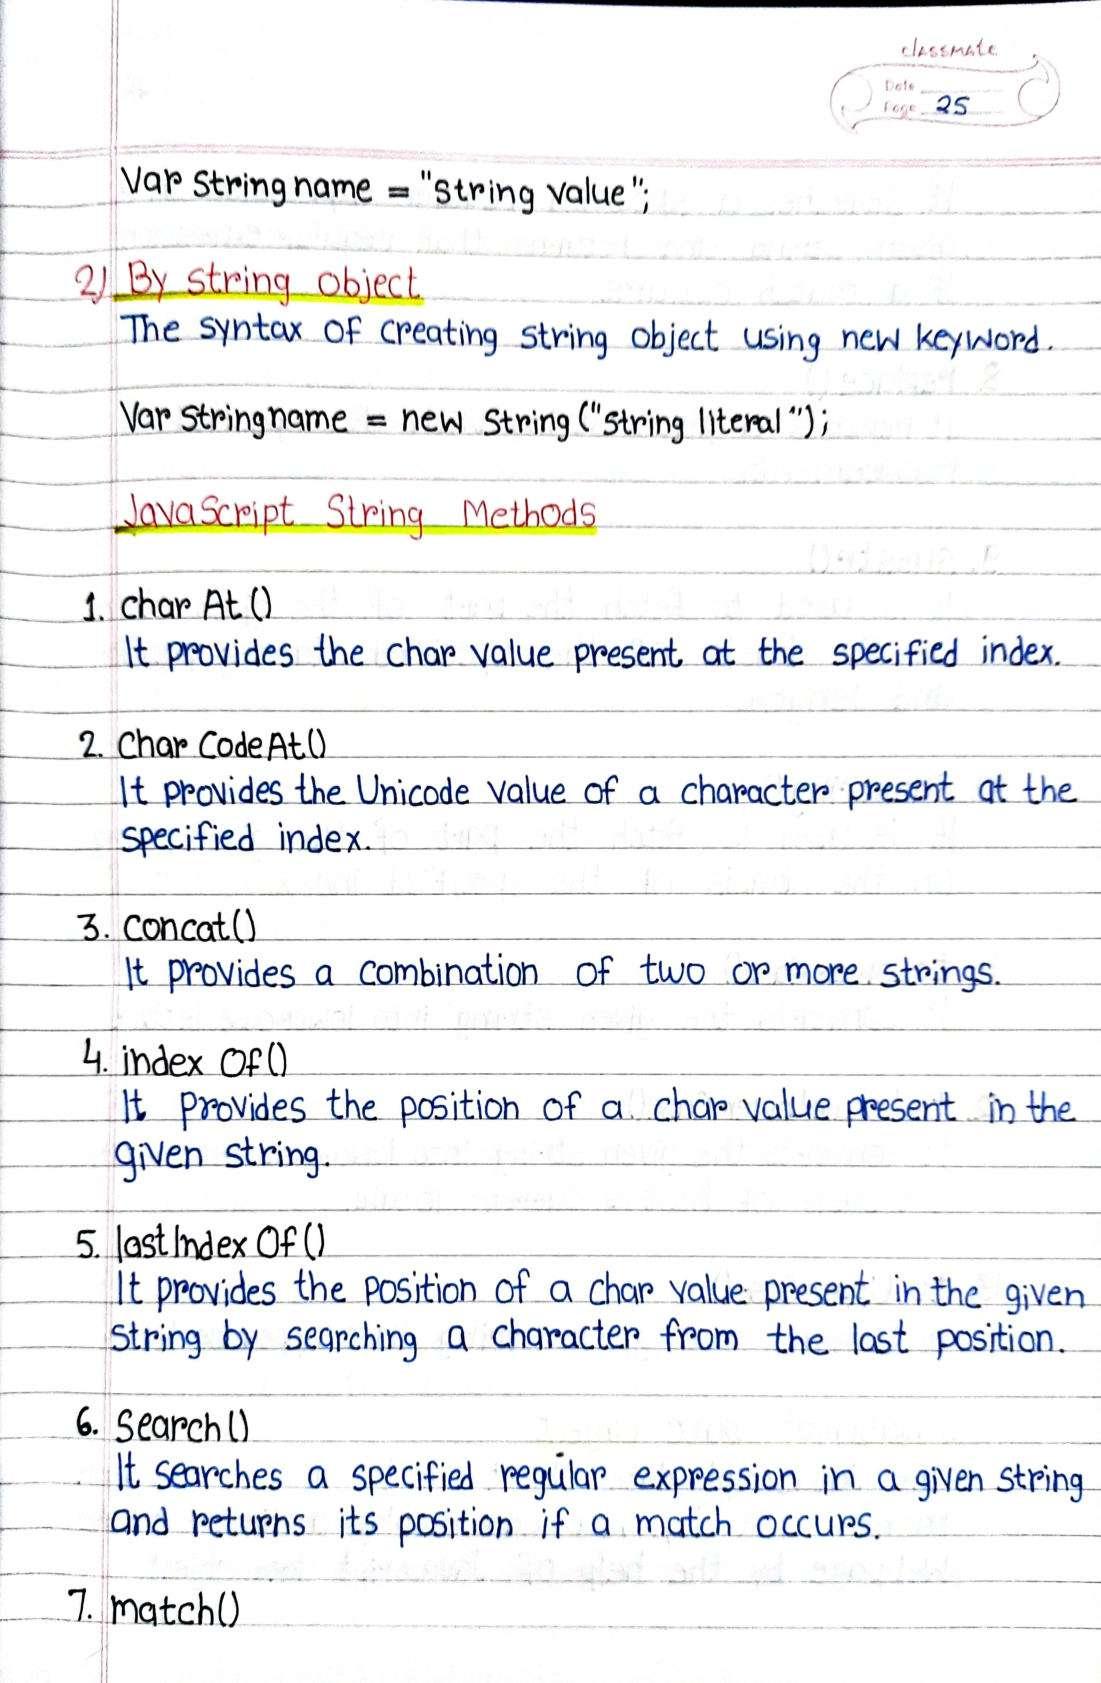 classmate
Date
Page 25
Var Stringname = "String value";
2) By string object
The syntax of creating string object using new keyword.
Var Stringname = new String ("String literal");
JavaScript String Methods
1. char At ()
It provides the char value present at the specified index.
2. Char CodeAt()
It provides the Unicode value of a character present at the
specified index.
3. concat()
It provides a combination of two or more strings.
4. index Of()
It provides the position of a char value present in the
given string.
5. lastIndex Of()
It provides the position of a char value present in the given
string by searching a character from the last position.
6. Search()
It searches a specified regular expression in a given string
and returns its position if a match occurs.
7. match()